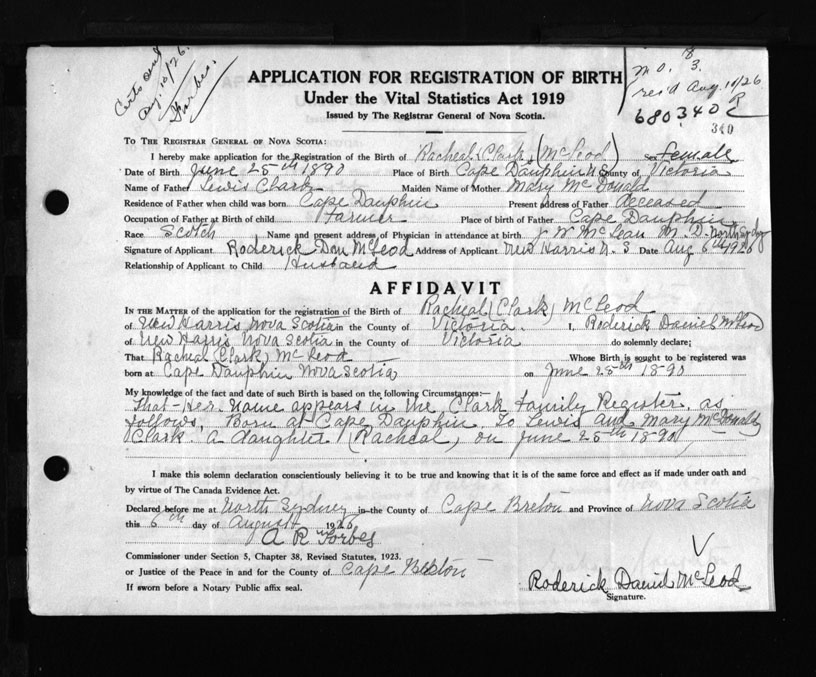 Certs sent
Aug. 10/26.
Forbes.
M.O. 8/3.
rec'd Aug. 10/26
R
680340
340
APPLICATION FOR REGISTRATION OF BIRTH
Under the Vital Statistics Act 1919
Issued by The Registrar General of Nova Scotia.
TO THE REGISTRAR GENERAL OF NOVA SCOTIA:
I hereby make application for the Registration of the Birth of Racheal (Clark) (McLeod) Sex female
Date of Birth June 25th 1890 Place of Birth Cape Dauphin N S County of Victoria
Name of Father Lewis Clark Maiden Name of Mother Mary McDonald
Residence of Father when child was born Cape Dauphin Present address of Father deceased
Occupation of Father at Birth of child Farmer Place of birth of Father Cape Dauphin
Race Scotch Name and present address of Physician in attendance at birth J W McLean M. D. North Sydney
Signature of Applicant Roderick Dan McLeod Address of Applicant New Harris N. S Date Aug 6th 1926
Relationship of Applicant to Child Husband
AFFIDAVIT
IN THE MATTER of the application for the registration of the Birth of Racheal (Clark) McLeod
of New Harris Nova Scotia in the County of Victoria. I, Roderick Daniel McLeod
of New Harris Nova Scotia in the County of Victoria do solemnly declare;
That Racheal (Clark) McLeod Whose Birth is sought to be registered was
born at Cape Dauphin Nova Scotia on June 25th 1890
My knowledge of the fact and date of such Birth is based on the following Circumstances:—
That Her Name appears in the Clark Family Register. as
follows. Born at Cape Dauphin. To Lewis and Mary McDonald
Clark. a daughter (Racheal) on June 25th 1890
I make this solemn declaration conscientiously believing it to be true and knowing that it is of the same force and effect as if made under oath and
by virtue of The Canada Evidence Act.
Declared before me at North Sydney in the County of Cape Breton and Province of Nova Scotia
this 6th day of August 1926
A R Forbes
Commissioner under Section 5, Chapter 38, Revised Statutes, 1923.
or Justice of the Peace in and for the County of Cape Breton
If sworn before a Notary Public affix seal.
Roderick Daniel McLeod
Signature.